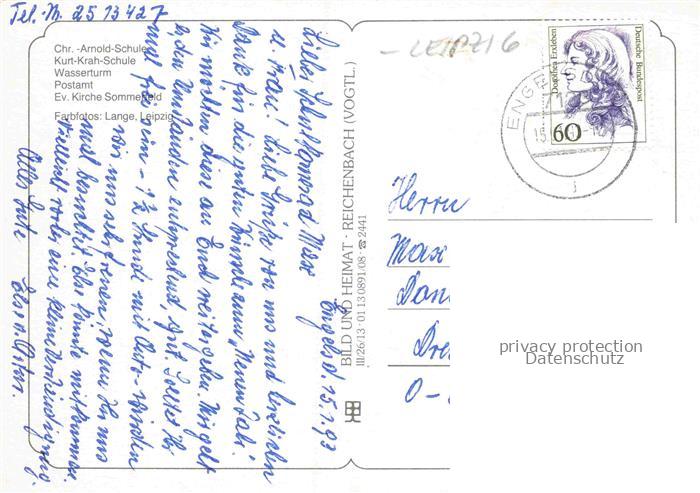 Tel.-N. 25 13427
Chr.-Arnold-Schule
Kurt-Krah-Schule
Wasserturm
Postamt
Ev. Kirche Sommerfeld
Farbfotos: Lange, Leipzig
Engelsd. 15.1.93
Lieber Schulkamerad Max
u. Frau! Liebe Grüße von uns und herzlichen
Dank für die guten Wünsche zum "Neuen Jahr".
Wir möchten diese an Euch weitergeben. Mir geht
es den Umständen entsprechend, gut. Solltet Ihr
mal frei sein - 1½ Stunde mit Auto - würden
wir uns sehr freuen, wenn Ihr uns
mal besuchtet. Else könnte mitkommen.
Vielleicht vorher eine kleine Verständigung.
Alles Gute Else u.
BILD UND HEIMAT · REICHENBACH (VOGTL.)
III/26/13 · 01 13 0891/08 · ☎ 2441
- LEIPZIG
Dorothea Erxleben
Deutsche Bundespost
60
ENGE
Herrn
Max
Dre
O-
privacy protection
Datenschutz